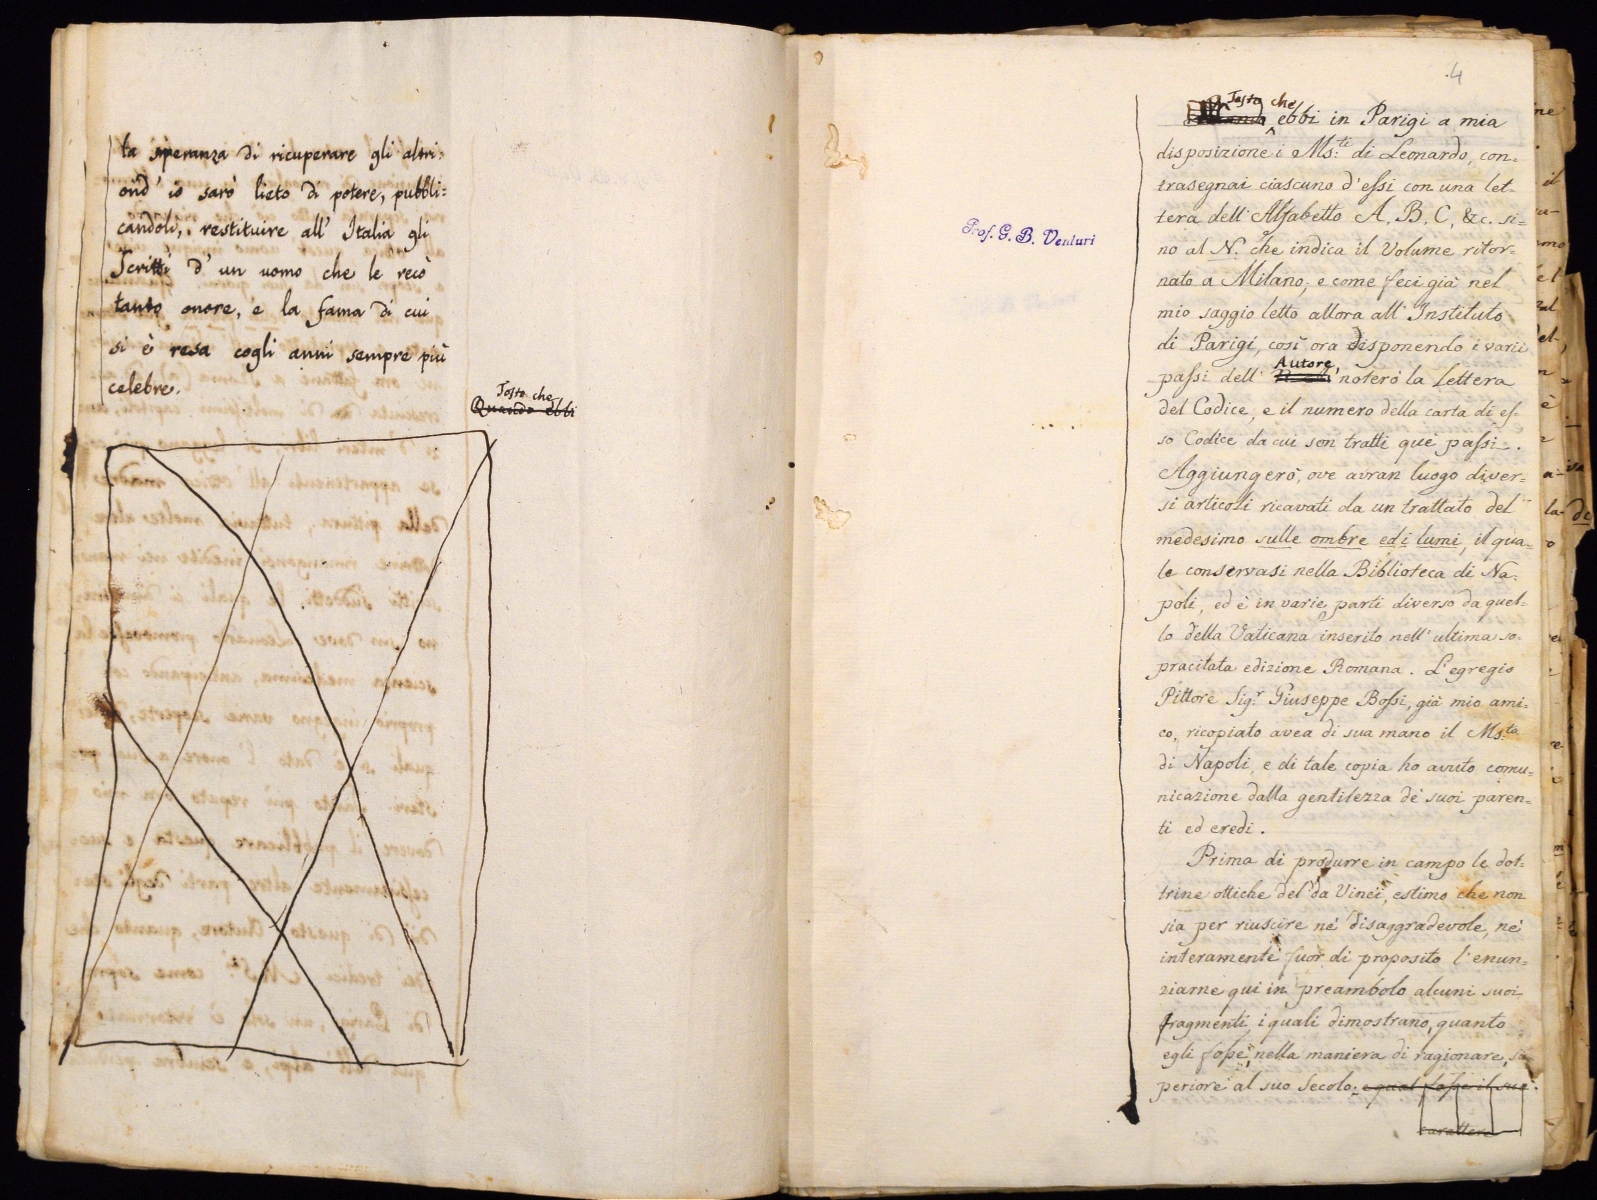 ta speranza di ricuperare gli altri:
ond' io sarò lieto di potere, pubbli=
candoli, restituire all' Italia gli
Scritti d' un uomo che le recò
tanto onore, e la fama di cui
si è resa cogli anni sempre più
celebre.
Tosto che
Quando ebbi
4
Prof. G. B. Venturi
Tosto che
ebbi in Parigi a mia
disposizione i Ms.ti di Leonardo, con=
trasegnai ciascuno d'essi con una let=
tera dell' Alfabetto A. B. C, &c. si=
no al N. che indica il Volume ritor=
nato a Milano; e come feci già nel
mio saggio letto allora all' Instituto
di Parigi, così ora disponendo i varii
Autore
passi dell' noterò la Lettera
del Codice, e il numero della carta di es=
so Codice da cui son tratti que' passi.
Aggiungerò, ove avran luogo diver=
si articoli ricavati da un trattato del
medesimo sulle ombre ed i lumi, il qua=
le conservasi nella Biblioteca di Na=
poli, ed è in varie parti diverso da quel=
lo della Vaticana inserito nell' ultima so=
pracitata edizione Romana. L'egregio
Pittore Sig.r Giuseppe Bossi, già mio ami=
co, ricopiato avea di sua mano il Ms.to
di Napoli, e di tale copia ho avuto comu=
nicazione dalla gentilezza de' suoi paren=
ti ed eredi.
Prima di produrre in campo le dot=
trine ottiche del da Vinci, estimo che non
sia per riuscire nè disaggradevole, nè
interamente fuor di proposito l'enun=
ziarne qui in preambolo alcuni suoi
fragmenti i quali dimostrano, quanto
egli fosse, nella maniera di ragionare, su
periore al suo Secolo; e qual fosse il suo
carattere